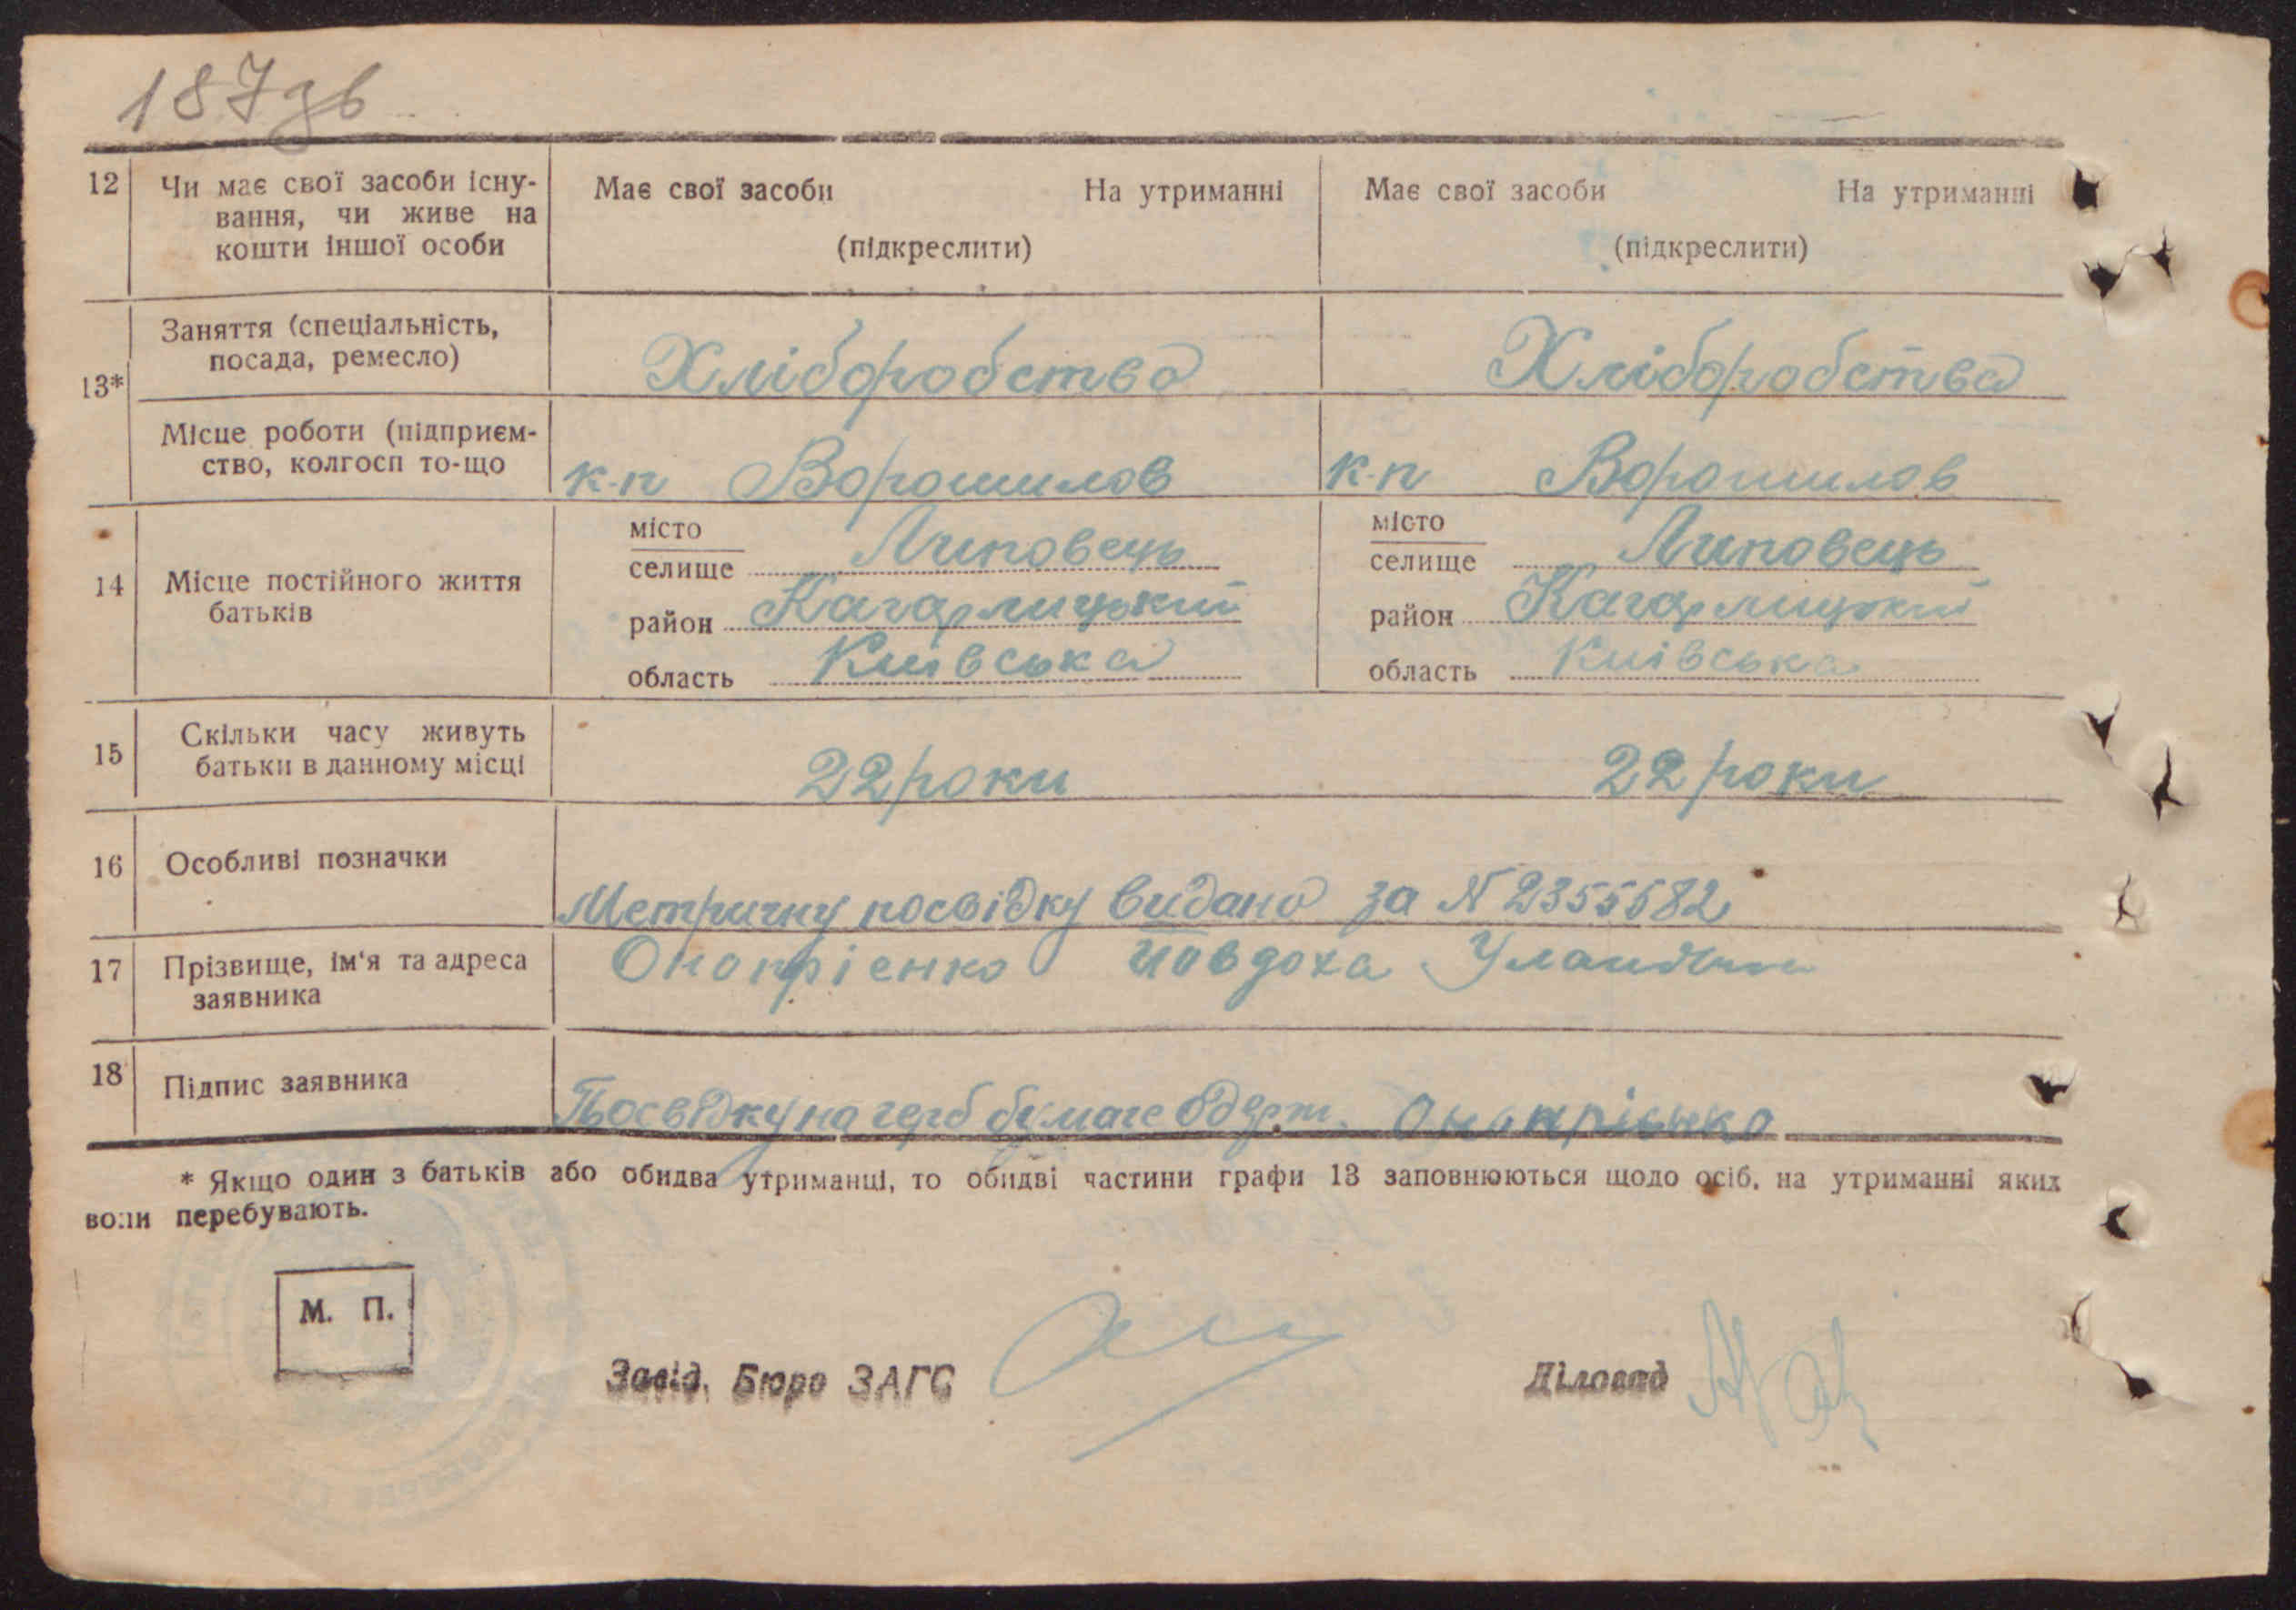 187зв
12 Чи має свої засоби існу- Має свої засоби На утриманні Має свої засоби На утриманні
вання, чи живе на
кошти іншої особи (підкреслити) (підкреслити)
Заняття (спеціальність,
посада, ремесло) Хліборобства Хліборобства
13*
Місце роботи (підприєм-
ство, колгосп то-що к-п Ворошилов к-п Ворошилов
місто місто
селище Липовець селище Липовець
14 Місце постійного життя
батьків район Кагарлицький район Кагарлицький
область Київська область Київська
15 Скільки часу живуть
батьки в данному місці 22 роки 22 роки
16 Особливі позначки
Метричну посвідку видано за N 2355582
17 Прізвище, ім'я та адреса Онопрієнко Йовдоха
заявника
18 Підпис заявника
Посвідку на герб бумаге одерж. Онопрієнко
* Якщо один з батьків або обидва утриманці, то обидві частини графи 13 заповнюються щодо осіб, на утриманні яких
вони перебувають.
М. П.
Завід. Бюро ЗАГС Діловод